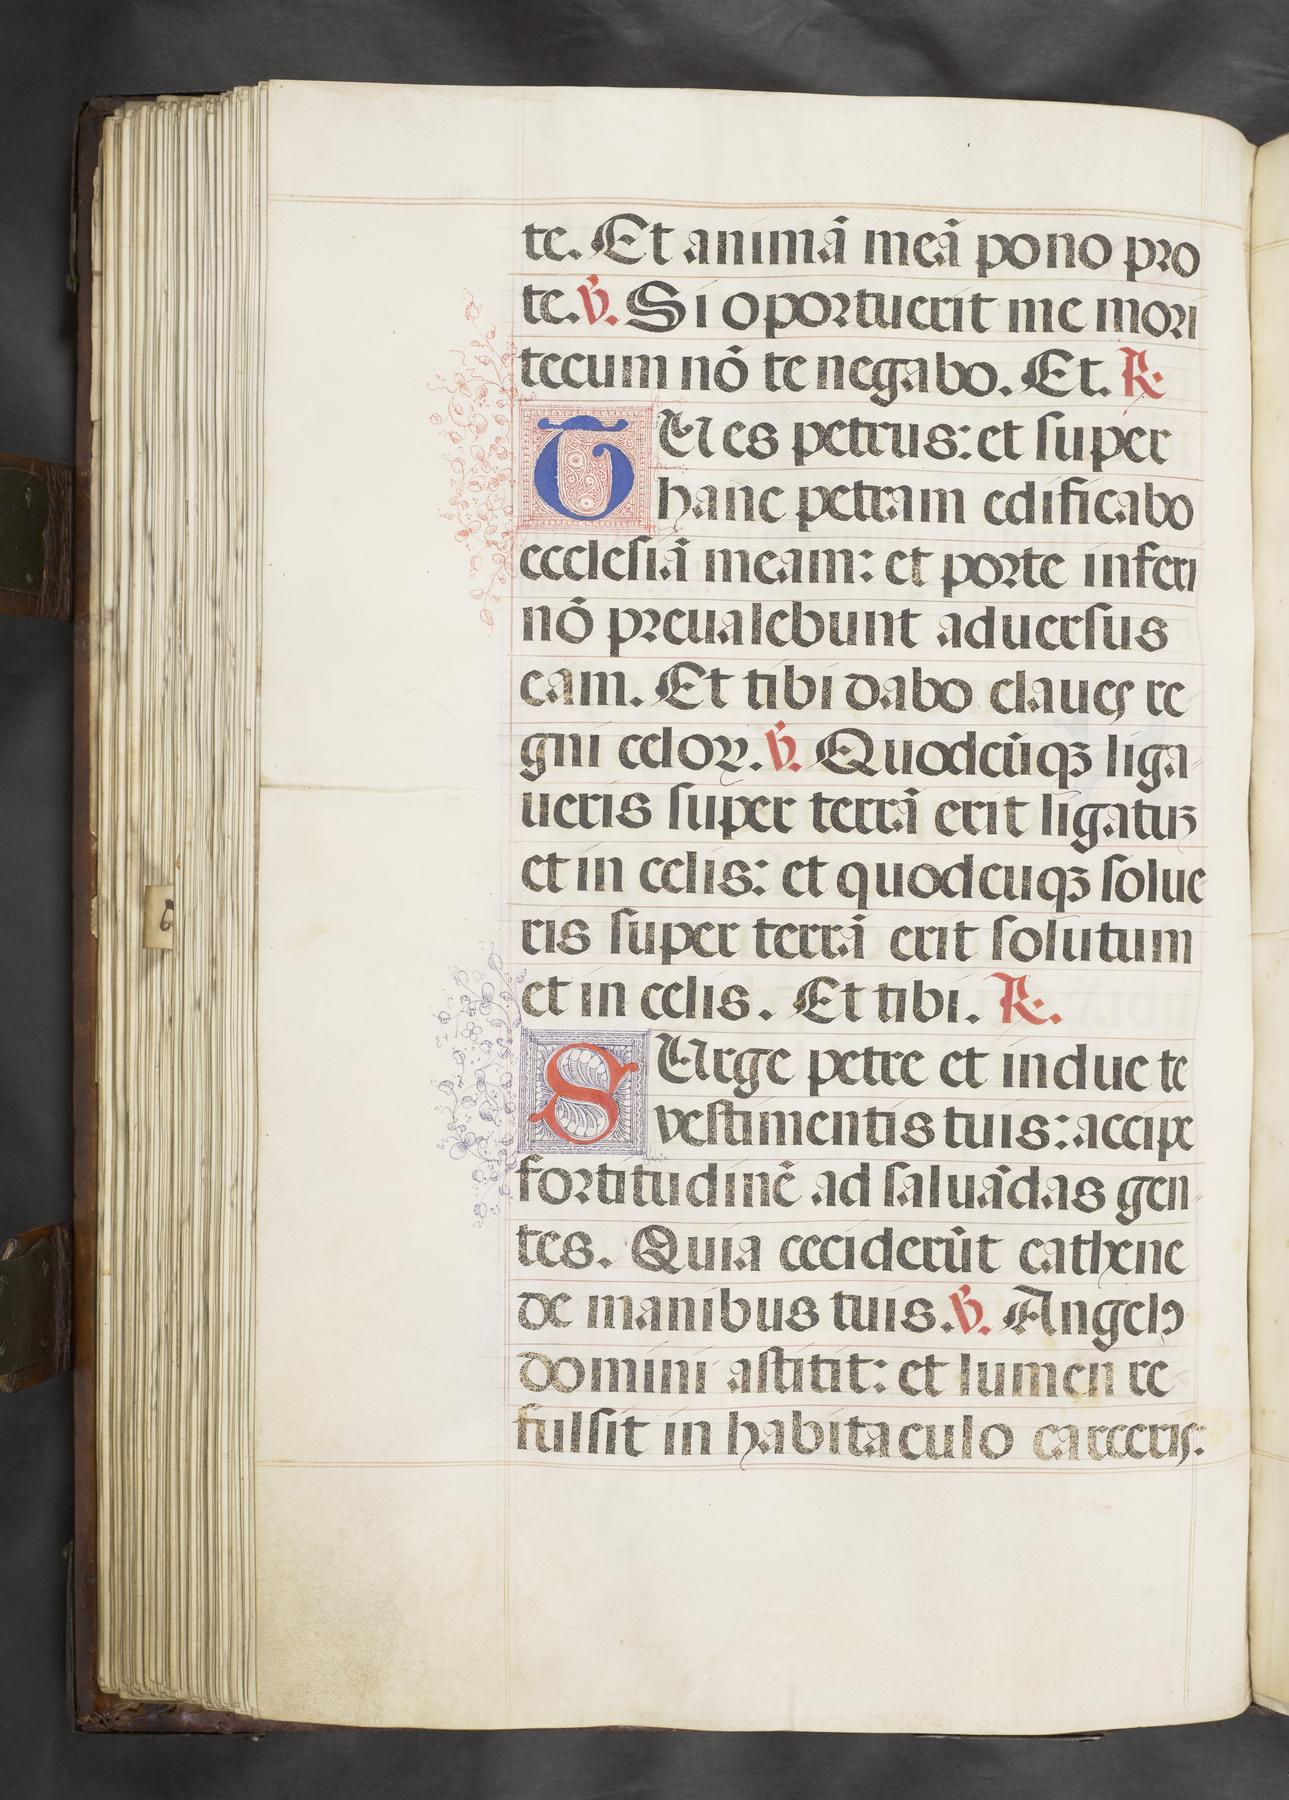 te. Et animā meā pono pro
te. ℣. Si oportuerit me mori
tecum nō te negabo. Et. ℟.
TU es petrus: et super
hanc petram edificabo
ecclesiā meam: et porte inferi
nō preualebunt aduersus
eam. Et tibi dabo claues re
gni celoꝝ. ℣. Quodcūqꝫ liga
ueris super terrā erit ligatuꝫ
et in celis: et quodcuqꝫ solue
ris super terrā erit solutum
et in celis. Et tibi. ℟.
SUrge petre et indue te
vestimentis tuis: accipe
fortitudinē ad saluādas gen
tes. Quia ceciderūt cathene
de manibus tuis. ℣. Angelꝰ
domini astitit: et lumen re
fulsit in habitaculo carceris.
6